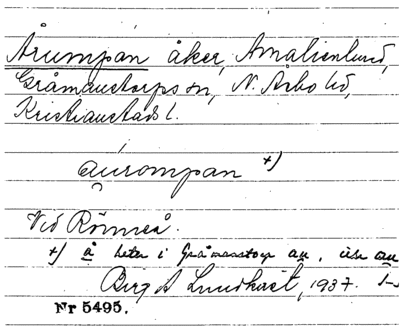 Årumpan åker, Amalienlund,
Gråmanstorps sn, N. Åsbo hd,
Kristianstads l.
au̯rompan +)
Vid Rönneå.
+) å heter i Gråmanstorp au̯,
Birg A Lundkvist, 1937.
Nr 5495.